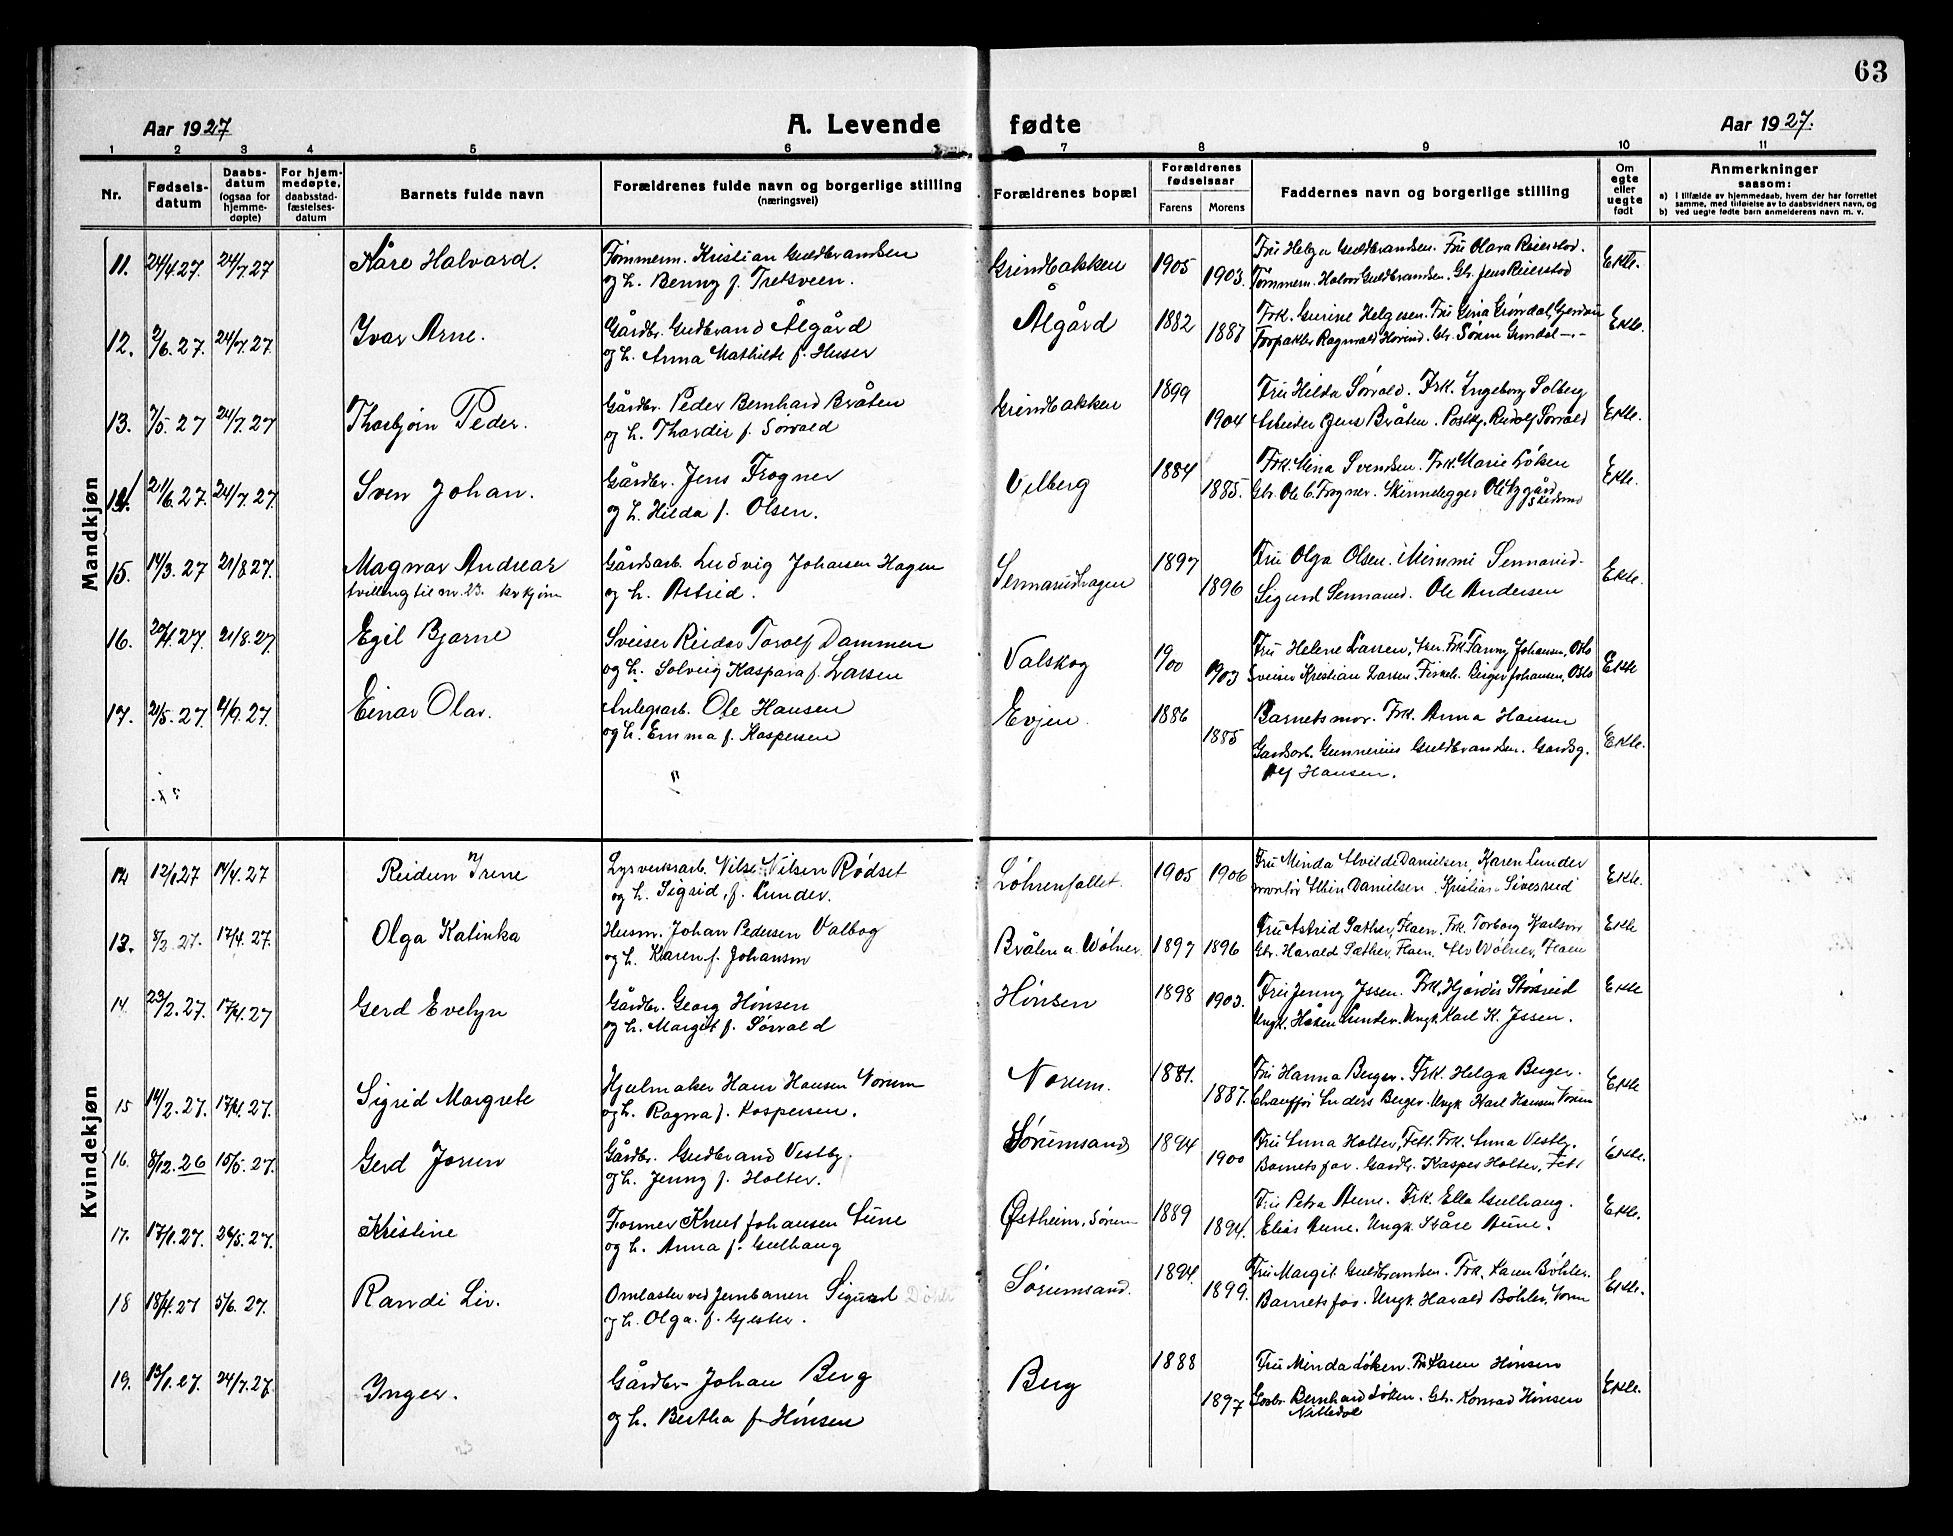 63
Aar 1927
A. Levende fødte
Aar 1927.
1 2 3 4 5 6 7 8 9 10 11
Nr.
Fødsels-
datum
Daabs-
datum
(ogsaa for
hjemme-
døpte)
For hjem-
medøpte,
daabsstad-
fæstelses-
datum
Barnets fulde navn
Forældrenes fulde navn og borgerlige stilling
(næringsvei)
Forældrenes bopæl
Forældrenes
fødselsaar
Farens
Morens
Faddernes navn og borgerlige stilling
Om
egte
eller
uegte
født
Anmerkninger
saasom:
a) i tilfælde av hjemmedaab, hvem der har forrettet
samme, med tilføielse av to daabsvidners navn, og
b) ved uegte fødte barn anmelderens navn m. v.
Mandkjøn
11. 24/4.27. 24/7.27 Kåre Halvard.
Tømmerm. Kristian Guldbrandsen
og h. Benny f. Tretsveen.
Grindbakken 1905 1903.
Fru Helga Guldbrandsen. Fru Olava Reierstad.
Tømmerm. Halvor Guldbrandsen. Gbr. Jens Reierstad
Ekte.
12. 9/6.27. 24/7.27 Ivar Arne.
Gårdbr. Gudbrand Ålgård
og h. Anna Mathilde f. Huser
Ålgård 1882 1887
Frk. Gurine Helgesen. Fru Gina Grøndal,
Forpakter Ragnvald Horind. Gbr. Søren Grøndal -"-
Ekte.
13. 7/5.27 24/7.27 Thorbjørn Peder.
Gårdbr. Peder Bernhard Bråten
og h. Thordis f. Sørvald
Grindbakken 1899 1904
Fru Hilda Sørvald. Frk. Ingeborg Solberg
Arbeider Jens Bråten. Postkj. Rudolf Sørvald
Ekte.
14. 21/6.27. 24/7.27 Sven Johan.
Gårdbr. Jens Frogner
og h. Hilda f. Olsen.
Vilberg 1884 1885.
Frk. Mina Svendsen. Frk. Marie Løken
Gbr. Ole C. Frogner. Skinnelegger Ole Nygård
Skedsmo
Ekte.
15. 14/3.27 21/8.27. Magnar Andreas
tvilling til nr. 23. kvkjøn
Gårdsarb. Ludvig Johansen Hagen
og h. Astrid.
Sennerudhagen 1897 1896
Fru Olga Olsen. Mimmi Sennerud.
Sigurd Sennerud. Ole Andersen
Ekte.
16. 20/4.27. 21/8.27. Egil Bjarne
Sveiser Reidar Torolf Dammen
og h. Solveig Kaspara f. Larsen
Valskog 1900 1903
Fru Helene Larsen, her. Frk. Fanny Johansen, Oslo
Sveiser Kristian Larsen, Birger Johansen, Oslo
Ekte
17. 21/5.27. 4/9.27. Einar Olav.
Anlegsarb. Ole Hansen
og h. Emma f. Kaspersen
Evjen. 1886 1885
Barnets mor. Frk. Anna Hansen
Gardsarb. Gunnerius Guldbrandsen. Gardsg.
Alf Hansen.
Ekte.
Kvindekjøn
12 12/1.27 17/4.27 Reidun Irene
Lysverksarb. Nils Nilsen Rødset
og h. Sigrid, f. Lunder.
Løhrenfallet. 1905 1906
Fru Minda Alvilde Danielsen, Karen Lunder
montør Danielsen. Kristian Sivesrud
Ekte.
13. 8/2.27. 17/4.27. Olga Katinka
Husm. Johan Pedersen Valbog
og h. Karen f. Johansen
Bråten u. Wølner. 1897 1896
Fru Astrid Sæther, Flaen, Frk. Torborg Karlsen
Gbr. Harald Sæther, Flaen. Wølner, Flaen
Ekte
14. 23/2.27. 17/4.27 Gerd Evelyn
Gårdbr. Georg Hønsen
og h. Margit f. Sørvald
Hønsen 1898 1903.
Fru Jenny Issen. Frk. Hjørdis Støvsrud
Ungk. Håken Lunder. Ungk. Karl K. Issen.
Ekte
15 14/2.27. 17/4.27. Sigrid Margrete
Hjulmaker Hans Hansen Norum
og h. Ragna f. Kaspersen.
Norum. 1881. 1887.
Fru Hanna Berger. Frk. Helga Berger.
Chauffør Anders Berger. Ungk Karl Hansen Norum
Ekte
16. 8/12.26 15/5.27. Gerd Jorun
Gårdbr. Gudbrand Vestby.
og h. Jenny f. Holter.
Sørumsand 1894 1900
Fru Anna Holter, Fet. Frk. Anna Vestby.
Barnets far. Gardbr. Kasper Holter, Fet
Ekte.
17. 17/1.27. 26/5.27. Kristine
Former Knut Johansen Aune
og h. Anna f. Gulhaug
Østheim, Sørum 1889 1894.
Fru Petra Aune. Frk. Ella Gulhaug.
Elias Aune. Ungk. Kåre Aune.
Ekte.
18 18/4.27 5/6.27. Randi Liv.
Omlaster ved Jernbanen Sigurd
og h. Olga f. Gjester.
Sørumsand. 1894. 1899.
Fru Margit Guldbrandsen. Frk. Karen Bøhler.
Barnets far. Ungk. Harald Bøhler, Norum
Ekte.
19. 13/1.27. 24/7.27. Inger.
Gårdbr. Johan Berg
og h. Bertha f. Hønsen
Berg 1888 1897
Fru Minda Løken. Fr. Karen Hønsen
Gårdbr. Bernhard Løken. Gbr. Konrad Hønsen
Nittedal
Ekte.